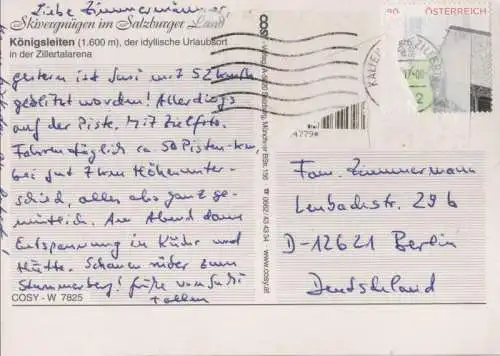 Liebe Zimmermänner,
Skivergnügen im Salzburger Land
Königsleiten (1.600 m), der idyllische Urlaubsort
in der Zillertalarena
gestern ist Susi mit 52 km/h
geblitzt worden! Allerdings
auf der Piste. Mit Zielfoto.
Fahren täglich ca 50 Pisten-km,
bei gut 7 km Höhenunter-
schied, alles also ganz ge-
mütlich. Am Abend dann
Entspannung in Küche und
Hütte. Schauen rüber zum
Stummerberg! Grüße von Susi
COSY - W 7825
COSY
A-5020 Salzburg, Münchner Bstr. 156
☎ 0662/43 43 34
www.cosy.at
4779
ÖSTERREICH
Fam. Zimmermann
Lenbachstr. 29b
D-12621 Berlin
Deutschland